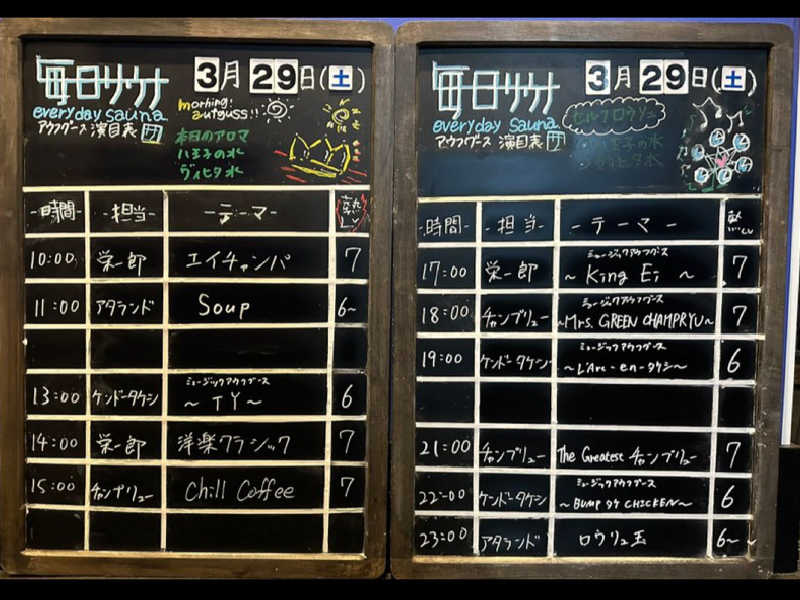 毎日サウナ
3月29日(土)
everyday sauna
アウフグース 演目表 サ
morning!
aufguss!!
本日のアロマ
八王子の水
ヴィヒタ水
-時間- -担当- -テーマ- 熱い
10:00 栄一郎 エイチャンパ 7
11:00 アタランド Soup 6~
13:00 ケンドータケシ ミュージックアウフグース ~TY~ 6
14:00 栄一郎 洋楽クラシック 7
15:00 チャンプリュー Chill Coffee 7
毎日サウナ
3月29日(土)
everyday sauna
アウフグース 演目表 サ
セルフロウリュ
八王子の水
ヴィヒタ水
-時間- -担当- -テーマ- 熱い
17:00 栄一郎 ミュージックアウフグース ~King Ei~ 7
18:00 チャンプリュー ミュージックアウフグース ~Mrs. GREEN CHAMPRYU~ 7
19:00 ケンドータケシ ミュージックアウフグース ~L'Arc-en-タケシ~ 6
21:00 チャンプリュー The Greatest チャンプリュー 7
22:00 ケンドータケシ ミュージックアウフグース ~BUMP OF CHICKEN~ 6
23:00 アタランド ロウリュ玉 6~